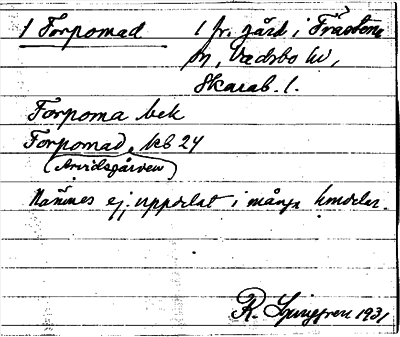 1 Forpomad 1 fr. gård i Fräsvens
sn, Vadsbo hd,
Skarab. l.
Forpoma bek
Forpomad, kb 24
(Arvidsgården)
Nämnes ej, uppdelat i många hmdelar.
R. Ljunggren 1931